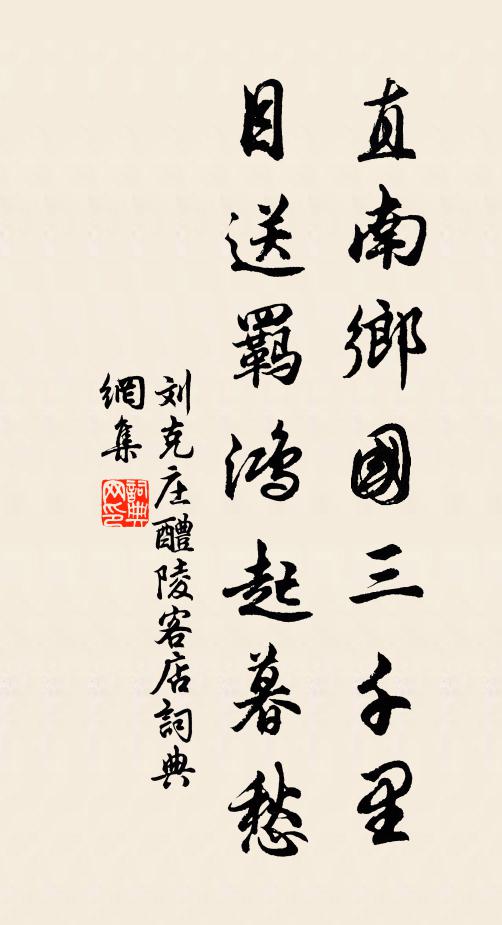 直南鄉國三千里
目送羈鴻起暮愁
刘克庄醴陵客店詞典
網集
詞典网印